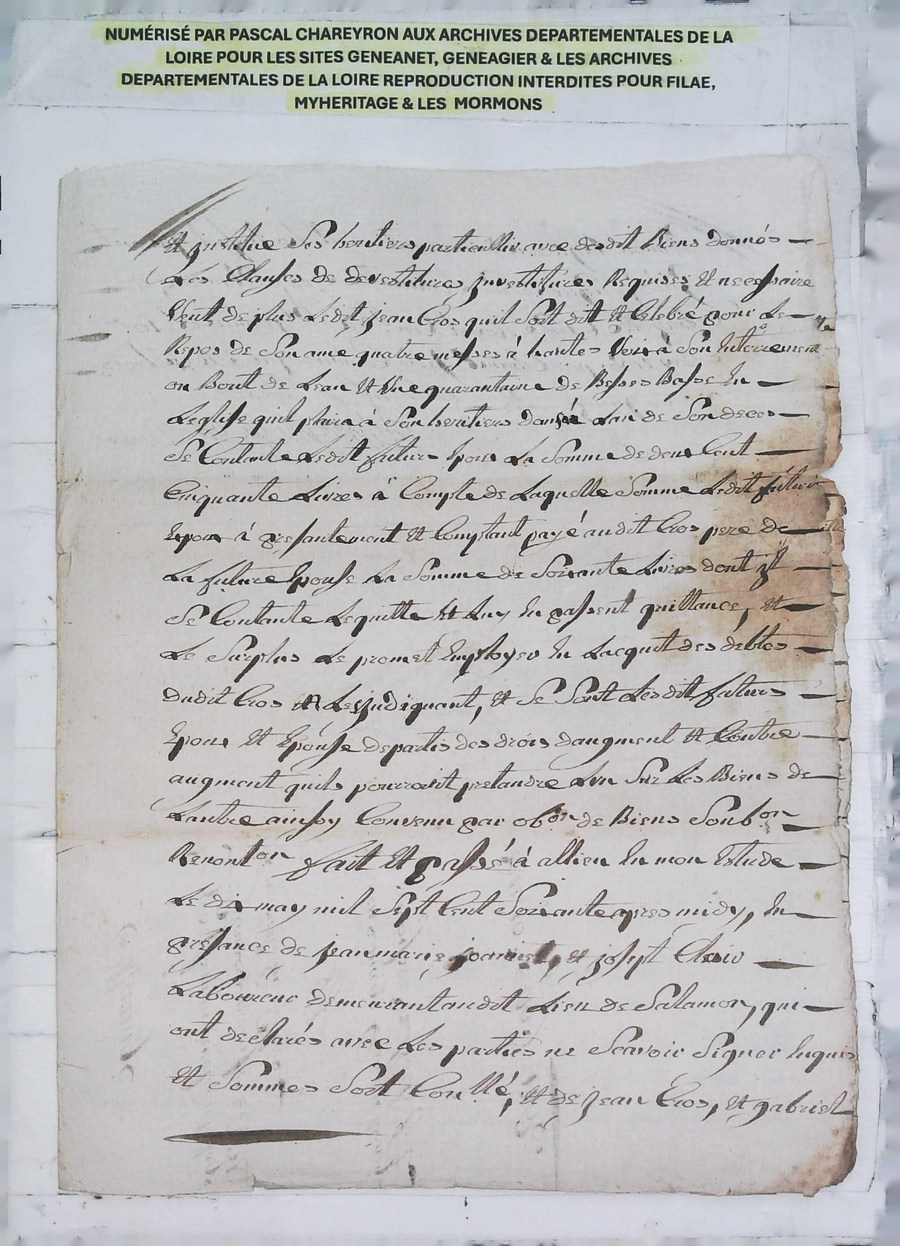 NUMÉRISÉ PAR PASCAL CHAREYRON AUX ARCHIVES DEPARTEMENTALES DE LA
LOIRE POUR LES SITES GENEANET, GENEAGIER & LES ARCHIVES
DEPARTEMENTALES DE LA LOIRE REPRODUCTION INTERDITES POUR FILAE,
MYHERITAGE & LES MORMONS
Et institue Ses heritiers avec desdit Biens donnés
Les Clauses de devestitures investitures Requises Et necessaire
Veut de plus Ledit jean Cros quil Soit dit Et Celebré pour Le
Repos de Son ame quatre messes à hautes Voix à Son Interrement
ou Bout de Lean Et Une quarantaine de Basse En
Leglise quil plaira à Son heritiers Lan de Son deces
Se Contante Ledit futur Epoux La Somme de deux Cent
Cinquante Livres à Compte de Laquelle Somme Ledit futur
Epoux à presantement Et Comptant payé audit Cros pere de
La future Epouse La Somme de Soixante Livres dont il
Se Contante Lequitte Et Luy En passent quittance, Et
Le Surplus Le promet Employer En Lacquit des debtes
dudit Cros Et Les indiquant, Et Se Sont Lesdit futurs
Epoux Et Epouse departis des drois daugment Et Contre
augment quils pourroit pretandre Lun Sur Les Biens de
Lautre ainsy Convenu par obon de Biens Soubon
Renonton fait Et passé à allieu En mon Estude
Le dix may mil Sept Cent Soixante apres midy, En
presance de jean marie Et joseph Clair
Laboureur demeurant audit Lieu de Salamon, qui
ont declarés avec Les parties ne Scavoir Signer Enquis
Et Sommes Soit Conllé, Et de jean Cros, Et gabriel